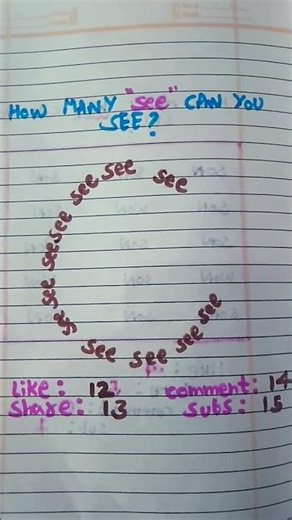 HOW MANY "see" CAN YOU
SEE?
see
see
see
see
see
see
see
see
see
see
see
Like: 12 comment: 14
Share: 13 Subs: 15